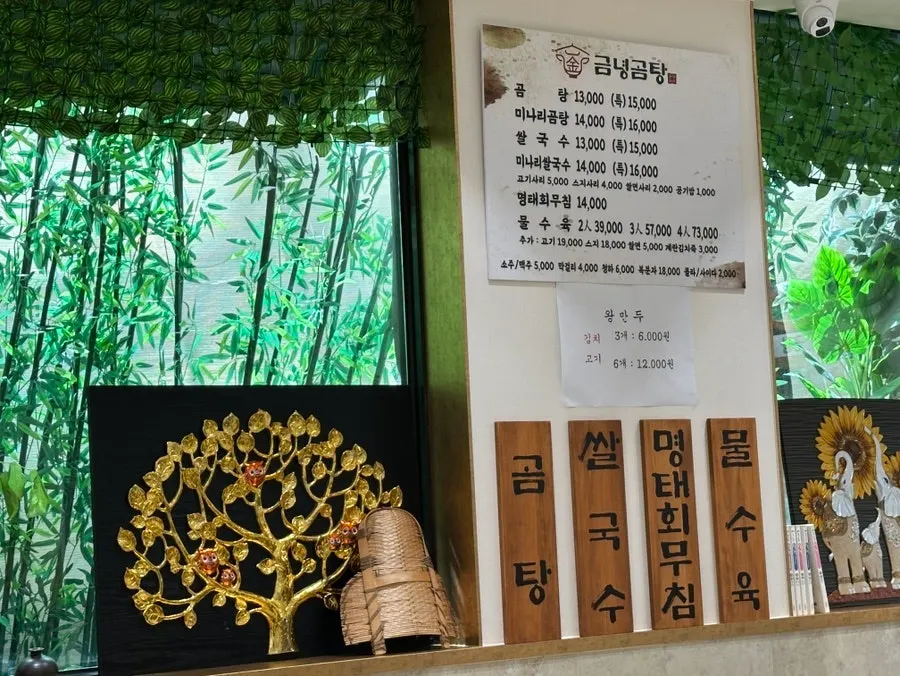 금녕곰탕
곰 탕 13,000 (특)15,000
미나리곰탕 14,000 (특)16,000
쌀 국 수 13,000 (특)15,000
미나리쌀국수 14,000 (특)16,000
고기사리 5,000 스지사리 4,000 쌀면사리 2,000 공기밥 1,000
명태회무침 14,000
물 수 육 2人 39,000 3人 57,000 4人 73,000
추가 : 고기 19,000 스지 18,000 쌀면 5,000 계란김치죽 3,000
소주/맥주 5,000 막걸리 4,000 청하 6,000 복분자 18,000 콜라/사이다 2,000
왕만두
김치 3개 : 6.000원
고기 6개 : 12.000원
곰탕
쌀국수
명태회무침
물수육